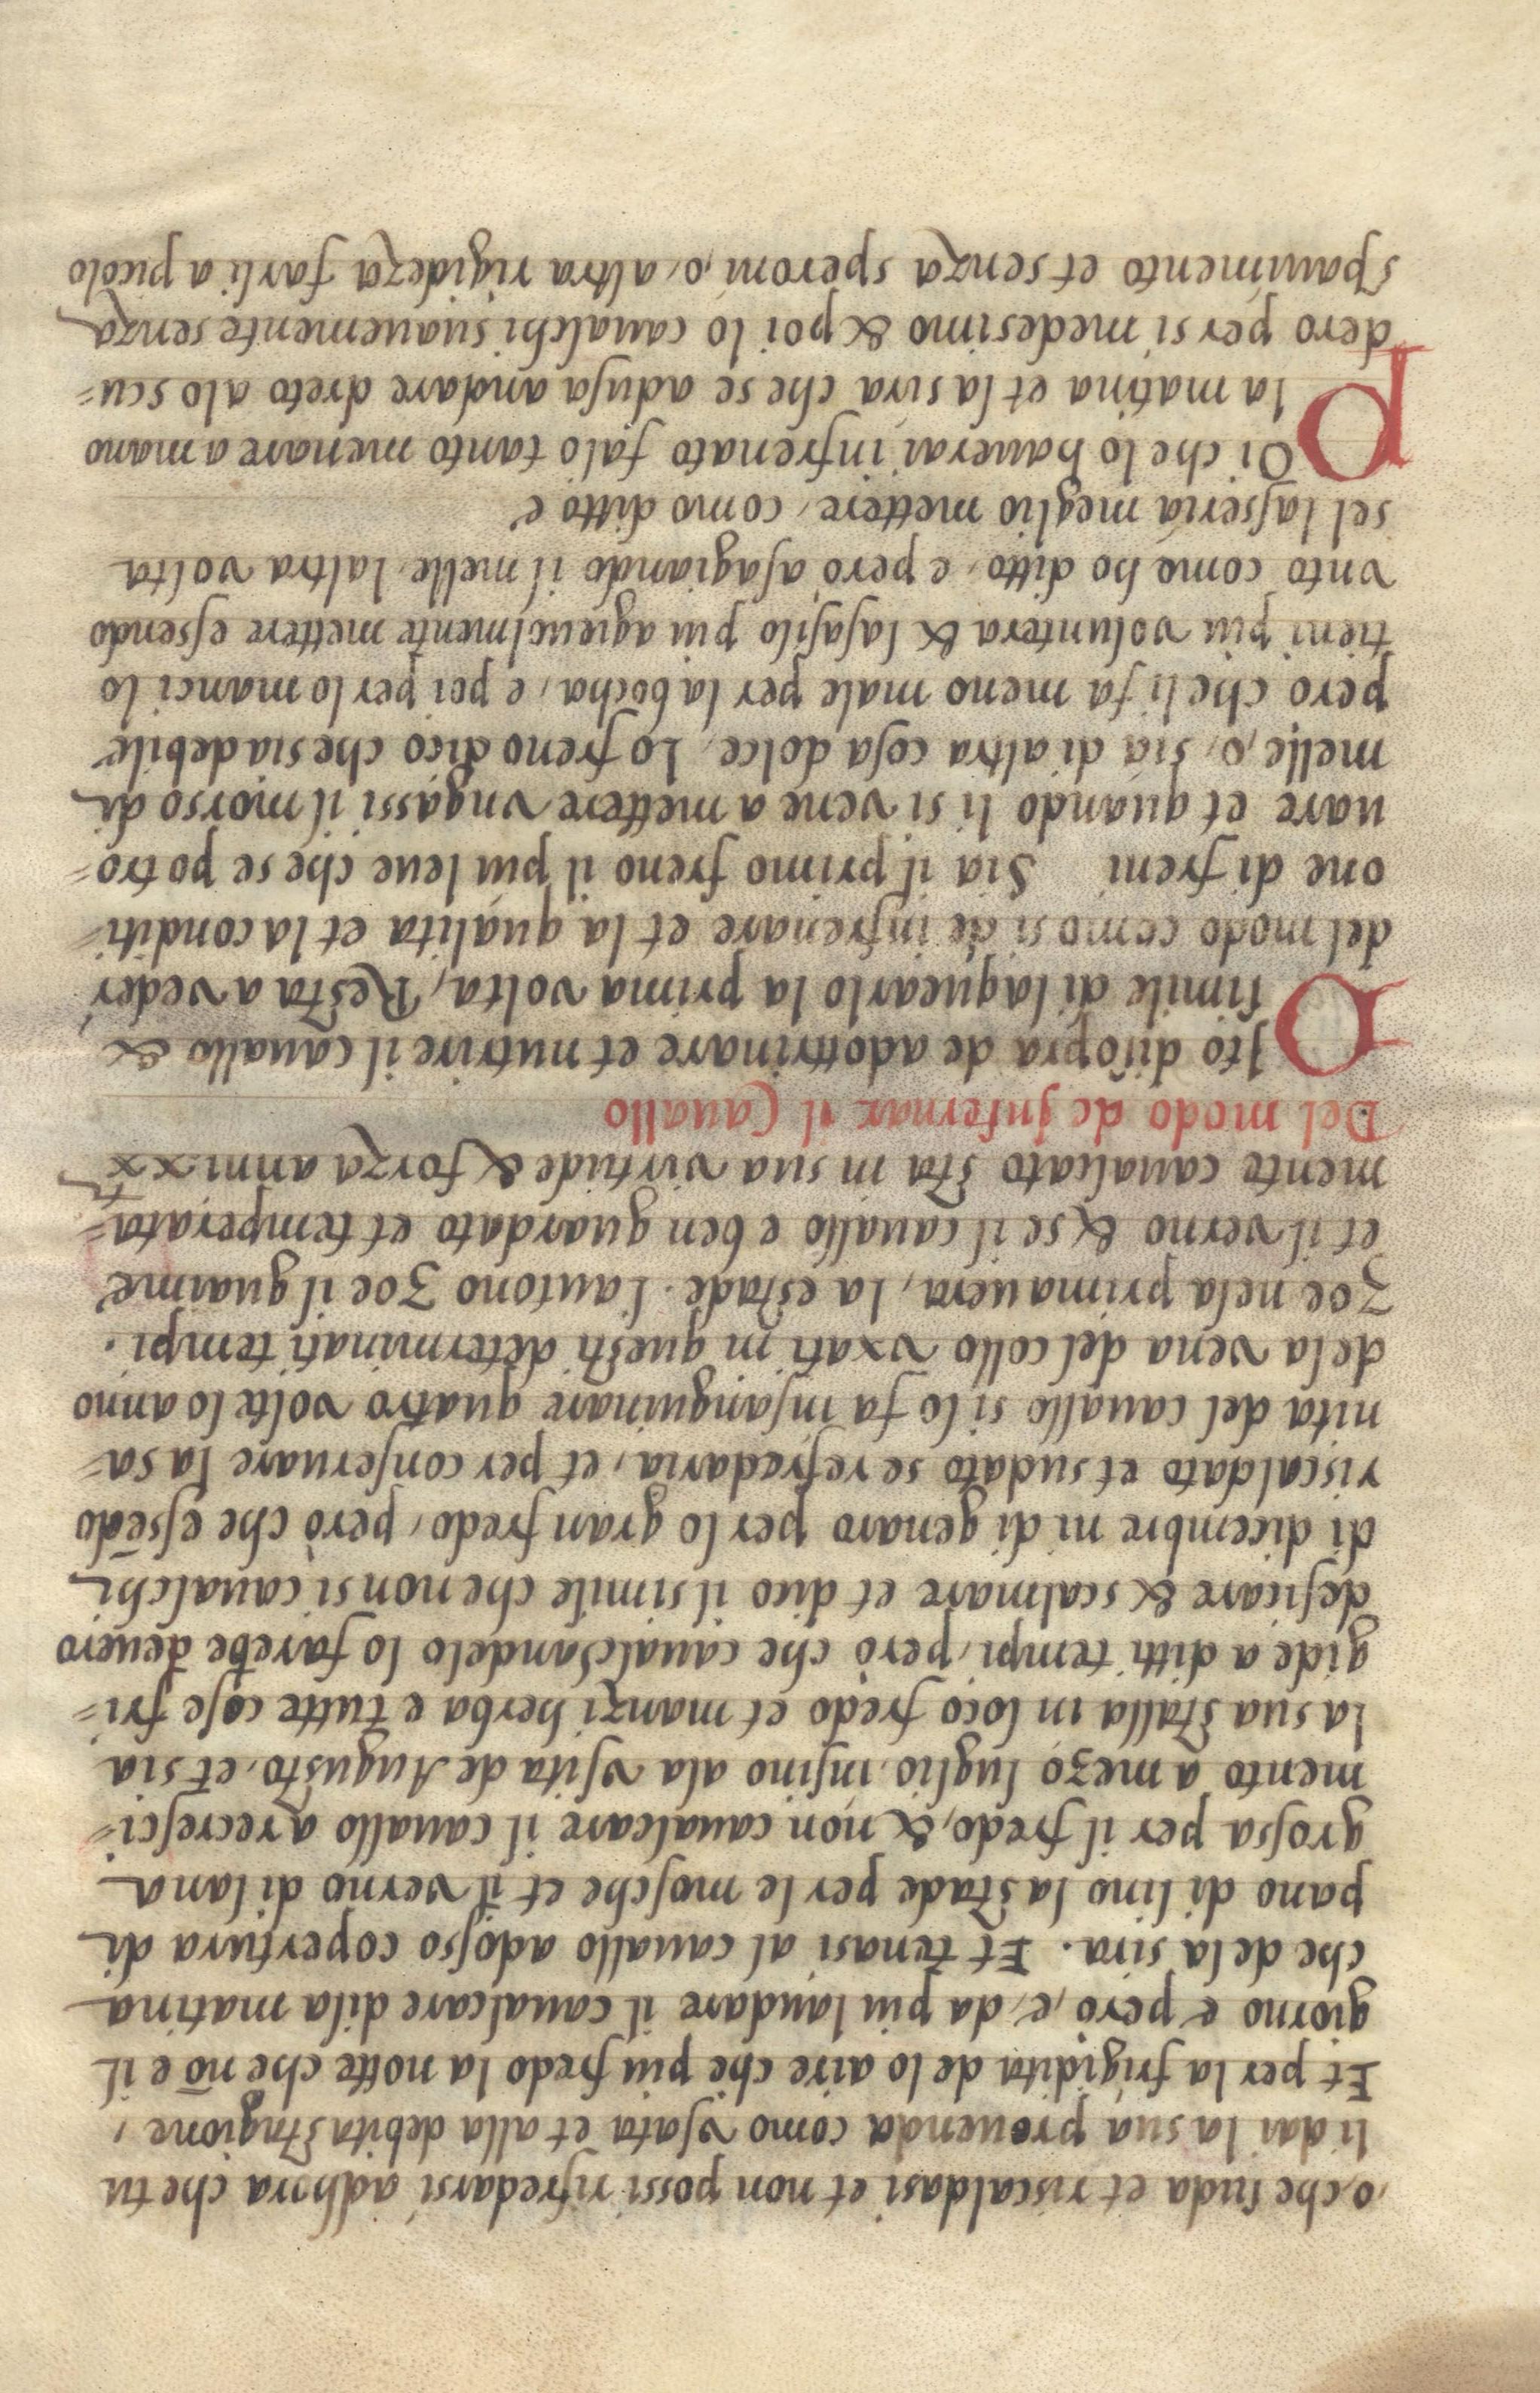 o, che suda et riscaldasi et non possi rifredarsi adhora che tu
li dai la sua prouenda como vsata et alla debita stagione,
Et per la frigidita de lo aire che piu fredo la notte che nō e il
giorno e pero, e, da piu laudare il caualcare dila matina
che de la sira. Et tenasi al cauallo adosso copertura di
pano di lino la stade per le mosche et il verno di lana
grossa per il fredo, & non caualcare il cauallo a recresci=
mento a mezo luglio, insino ala vsita de Augusto, et sia
la sua stalla in loco fredo et manzi herba e tutte cose fri=
gide a ditti tempi, però che caualchandelo lo farebe deuero
desicare & scalmare et dico il simile che non si caualchi
di dicembre ni di genaro per lo gran fredo, però che essēdo
riscaldato et sudato se refredaria, et per conseruare la sa=
nita del cauallo si lo fa insanguinare quatro volte lo anno
de la vena del collo vxati in questi determinati tempi.
Zoe nela primauera, la estade. lautono Zoe il guaime
et il verno & se il cauallo e ben guardato et temperata=
mente caualcato sta in sua virtude & forza anni xx
Del modo de Infernar il Cauallo
DIto disopra de adottrinare et nutrire il cauallo &
simile di laquearlo la prima volta, Resta a veder
del modo como si de infrenare et la qualita et la conditi=
one di freni Sia il primo freno il piu leue che se potro=
uare et quando li si vene a mettere vngassi il morso di
melle, o, sia di altra cosa dolce, Lo freno dico che sia debile
pero che li fa meno male per la bocha, e poi per lo manci lo
tieni piu voluntera & lasasilo piu agieuolmente mettere essendo
vnto como ho ditto, e però asagiando il melle, laltra volta
sel lasseria meglio mettere, como ditto e
POi che lo hauerai infrenato falo tanto menare a mano
la matina et la sira che se adusa andare dreto alo scu=
dero per si medesimo & poi lo caualchi suauemente senza
spauimento et senza speroni, o, altra rigideza farli a picolo